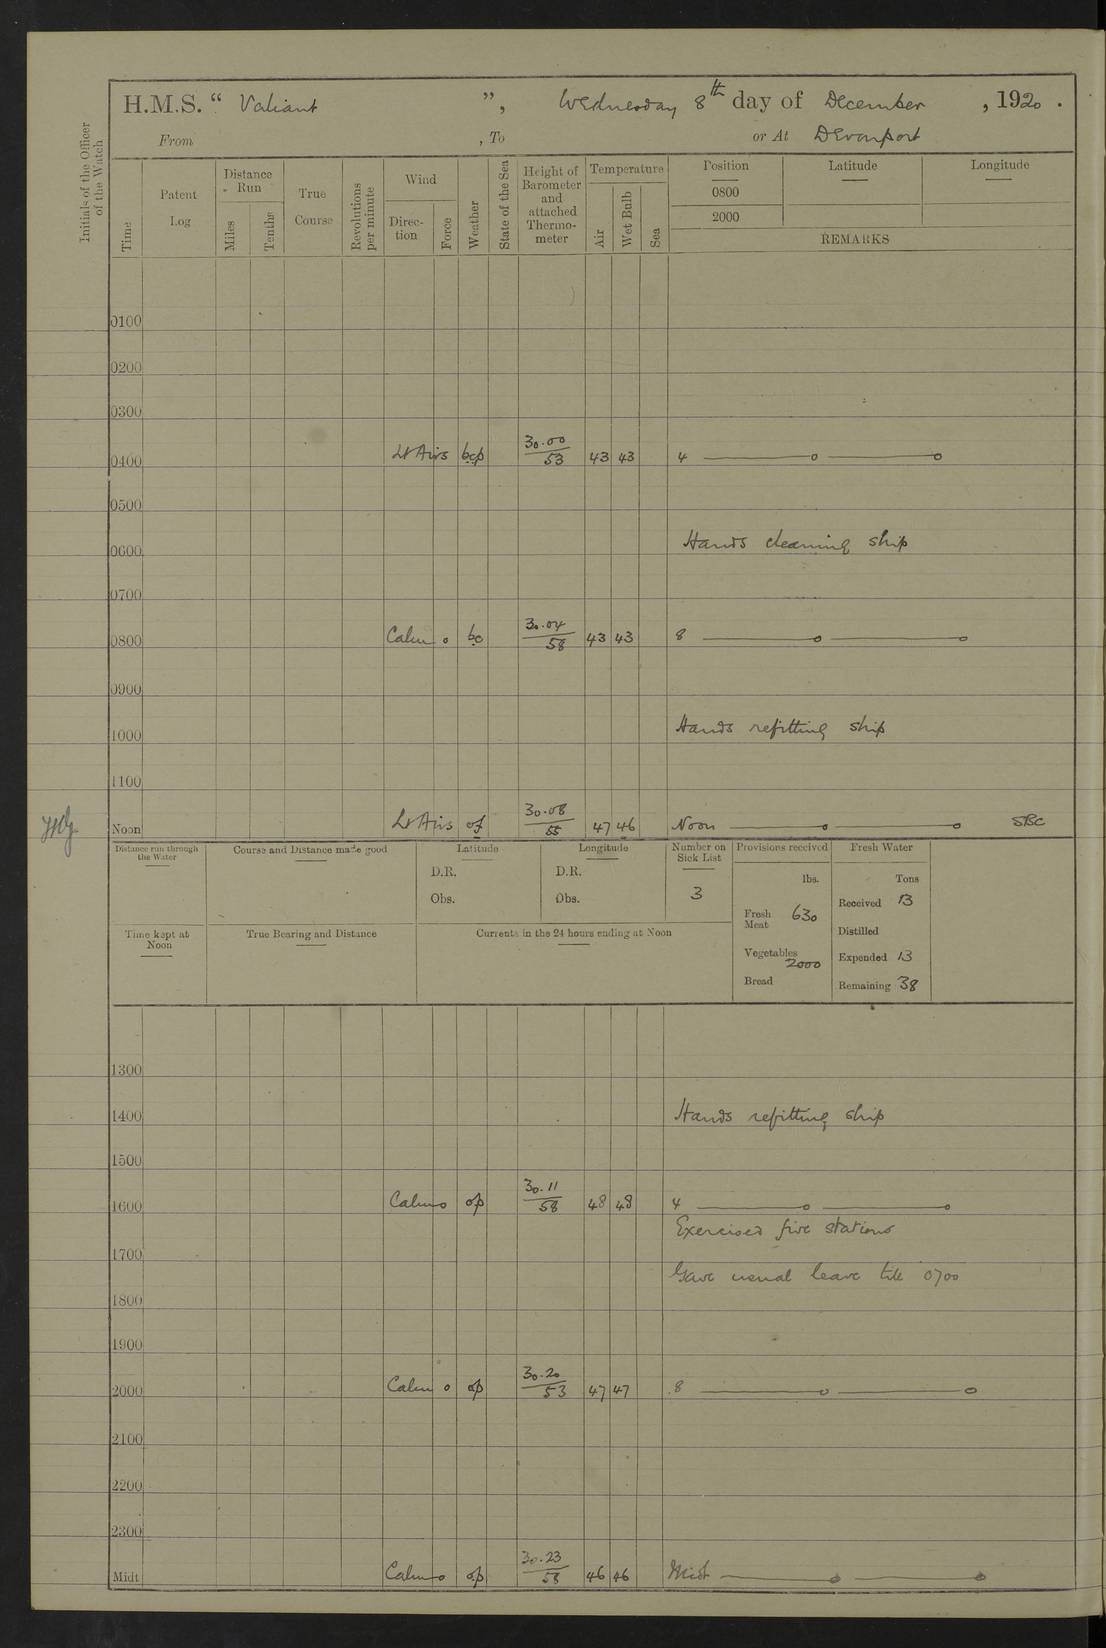 H.M.S. “ Valiant ”, Wednesday 8th day of December , 1920 .
From , To or At Devonport
Initials of the Officer of the Watch
Time
Patent Log
Distance Run
Miles
Tenths
True Course
Revolutions per minute
Wind
Direction
Force
Weather
State of the Sea
Height of Barometer and attached Thermometer
Temperature
Air
Wet Bulb
Sea
Position Latitude Longitude
0800
2000
REMARKS
0100
0200
0300
0400 Lt Airs bcp 30.00/53 43 43 4
0500
0600 Hands cleaning ship
0700
0800 Calm 0 bc 30.04/58 43 43 8
0900
1000 Hands refitting ship
1100
Noon Lt Airs of 30.08/55 47 46 Noon SBC
Distance run through the Water
Course and Distance made good
Latitude
D.R.
Obs.
Longitude
D.R.
Obs.
Number on Sick List
3
Provisions received
lbs.
Fresh Meat 630
Vegetables 2000
Bread
Fresh Water
Tons
Received 13
Distilled
Expended 13
Remaining 38
Time kept at Noon
True Bearing and Distance
Currents in the 24 hours ending at Noon
1300
1400 Hands refitting ship
1500
1600 Calm 0 op 30.11/58 48 48 4
Exercised fire stations
1700
Gave usual leave till 0700
1800
1900
2000 Calm 0 op 30.20/53 47 47 8
2100
2200
2300
Midt Calm 0 op 30.23/58 46 46 Midt